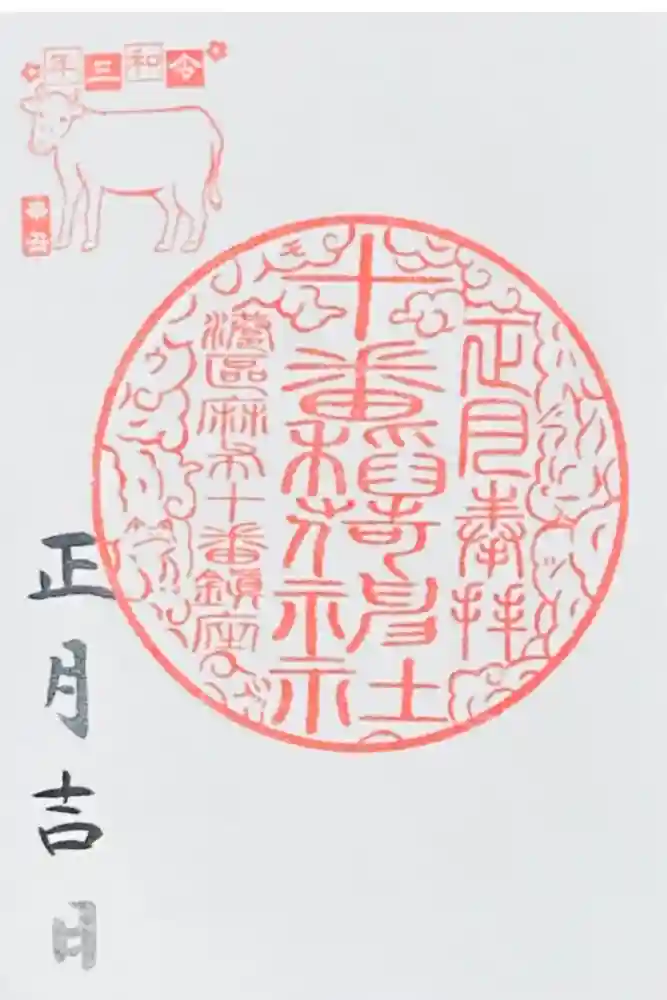 令和三年
辛丑
正月奉拝
十番稲荷神社
港區麻布十番鎮座
正月吉日